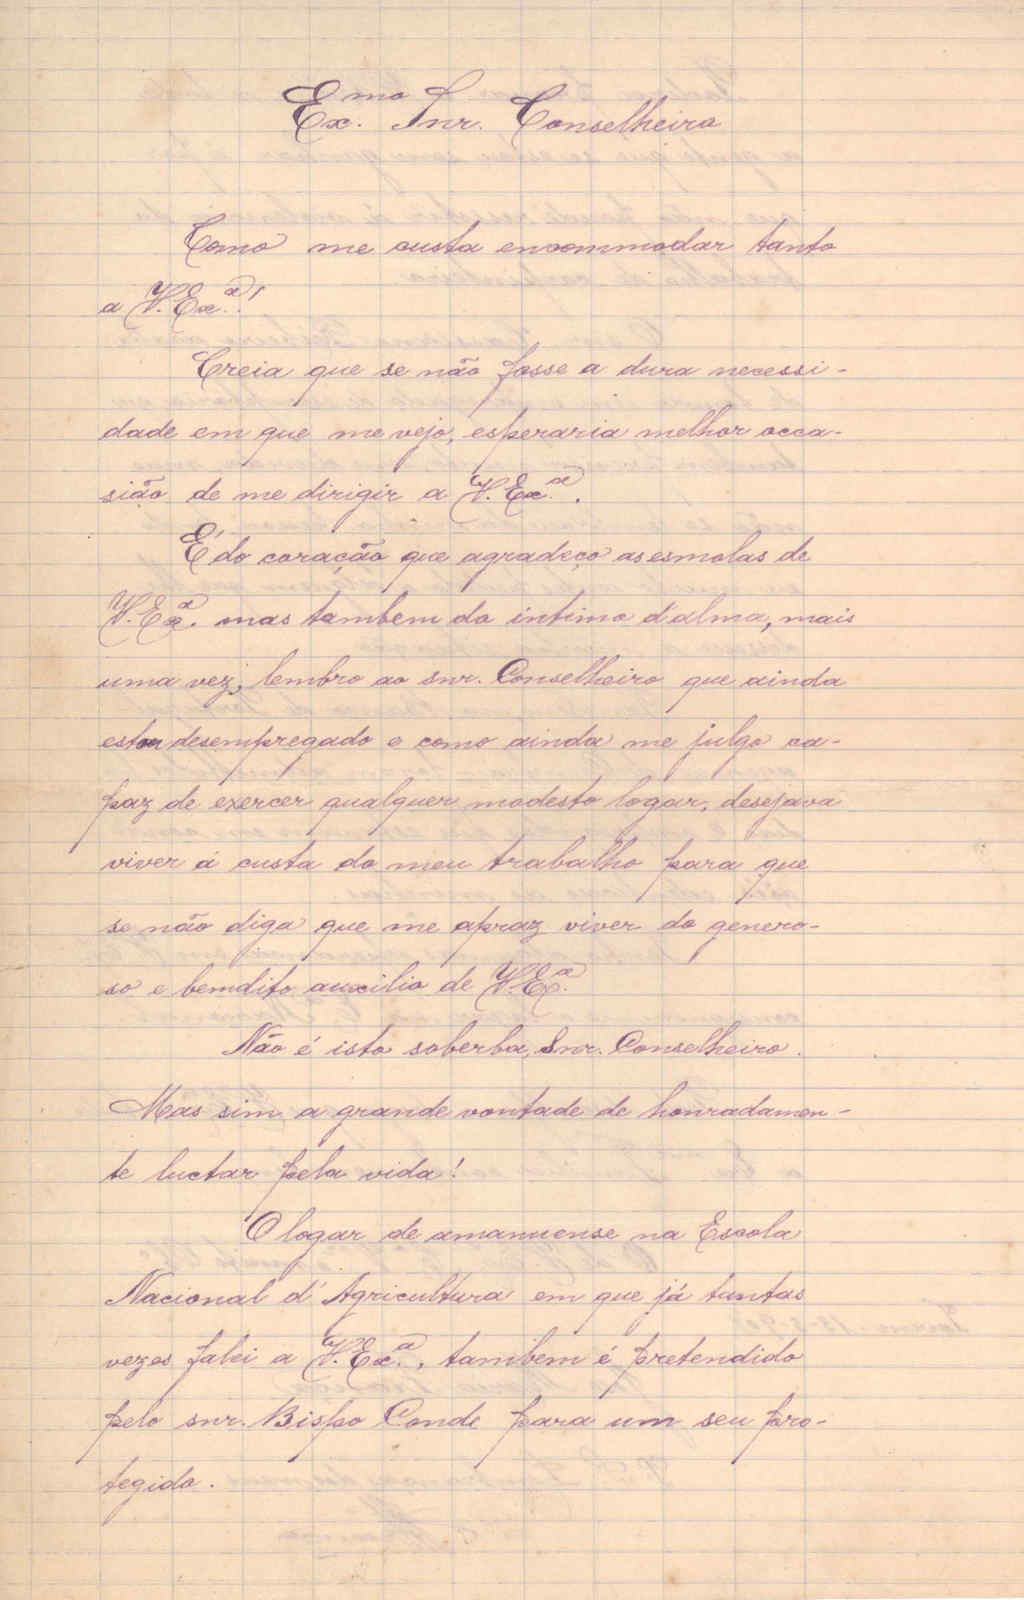 Ex.mo Snr. Conselheiro
Como me custa encommodar tanto
a V. Ex.ª!
Creia que se não fosse a dura necessi-
dade em que me vejo, esperaria melhor occa-
sião de me dirigir a V. Ex.ª.
É do coração que agradeço as esmolas de
V. Exª. mas tambem do intimo d'alma, mais
uma vez, lembro ao snr. Conselheiro que ainda
estou desempregado e como ainda me julgo ca-
paz de exercer qualquer modesto logar, desejava
viver á custa do meu trabalho para que
se não diga que me apraz viver do genero-
so e bemdito auxilio de V. Exª.
Não é isto soberba, Snr. Conselheiro.
Mas sim a grande vontade de honradamen-
te luctar pela vida!
O logar de amanuense na Escola
Nacional d'Agricultura em que já tantas
vezes falei a V. Ex.ª, tambem é pretendido
pelo snr. Bispo Conde para um seu pro-
tegido.